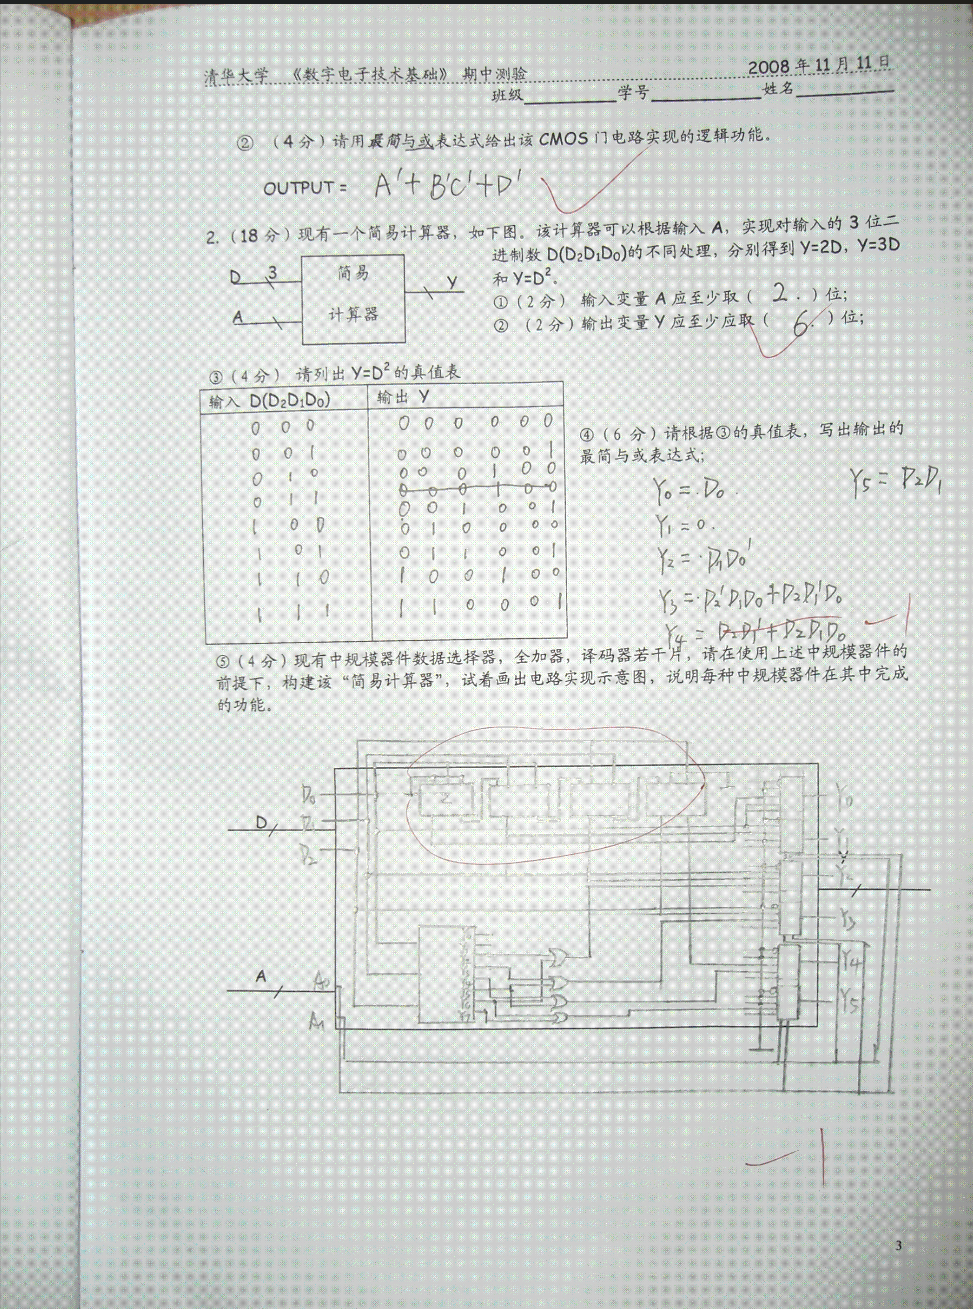 清华大学 《数字电子技术基础》 期中测验 2008 年 11 月 11 日
班级 学号 姓名
② (4 分) 请用最简与或表达式给出该 CMOS 门电路实现的逻辑功能。
OUTPUT = A'+B'C'+D'
2. (18 分) 现有一个简易计算器, 如下图。该计算器可以根据输入 A, 实现对输入的 3 位二
进制数 D(D₂D₁D₀)的不同处理, 分别得到 Y=2D, Y=3D
和 Y=D²。
D 3 简易 Y
A 计算器
① (2 分) 输入变量 A 应至少取 ( 2. ) 位;
② (2 分) 输出变量 Y 应至少应取 ( 6. ) 位;
③ (4 分) 请列出 Y=D² 的真值表
输入 D(D₂D₁D₀) 输出 Y
0 0 0 0 0 0 0 0 0
0 0 1 0 0 0 0 0 1
0 1 0 0 0 0 1 0 0
0 0 0 1 0 0
0 1 1 0 0 1 0 0 1
1 0 0 0 1 0 0 0 0
1 0 1 0 1 1 0 0 1
1 1 0 1 0 0 1 0 0
1 1 1 1 1 0 0 0 1
④ (6 分) 请根据③的真值表, 写出输出的
最简与或表达式;
Y₀ = D₀. Y₅ = D₂D₁
Y₁ = 0.
Y₂ = D₁D₀'
Y₃ = D₂'D₁D₀+D₂D₁'D₀
Y₄ = D₂D₁'+D₂D₁D₀
-1
⑤ (4 分) 现有中规模器件数据选择器, 全加器, 译码器若干片, 请在使用上述中规模器件的
前提下, 构建该 "简易计算器", 试着画出电路实现示意图, 说明每种中规模器件在其中完成
的功能。
D₀ Σ Y₀
D D₁ Y₁
D₂ Y
Y₂
Y₃
A A₀ Y₄
A₁ Y₅
-1
3